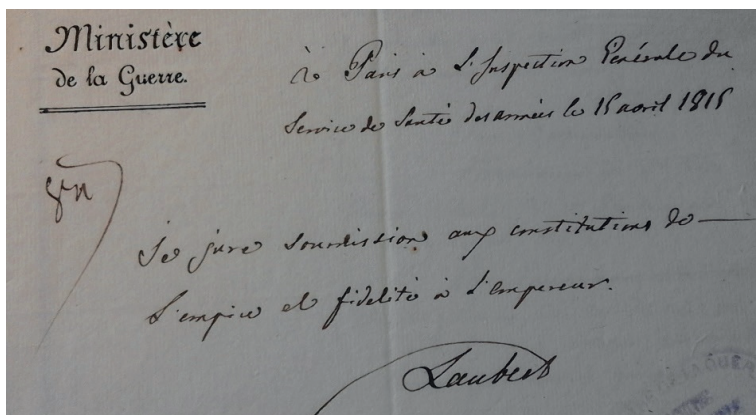 Ministère
de la Guerre.
à Paris à L'Inspection Générale du
Service de Santé des armées le 15 avril 1815
Je jure soumission aux constitutions de —
L'empire et fidelité à L'empereur.
Laubert